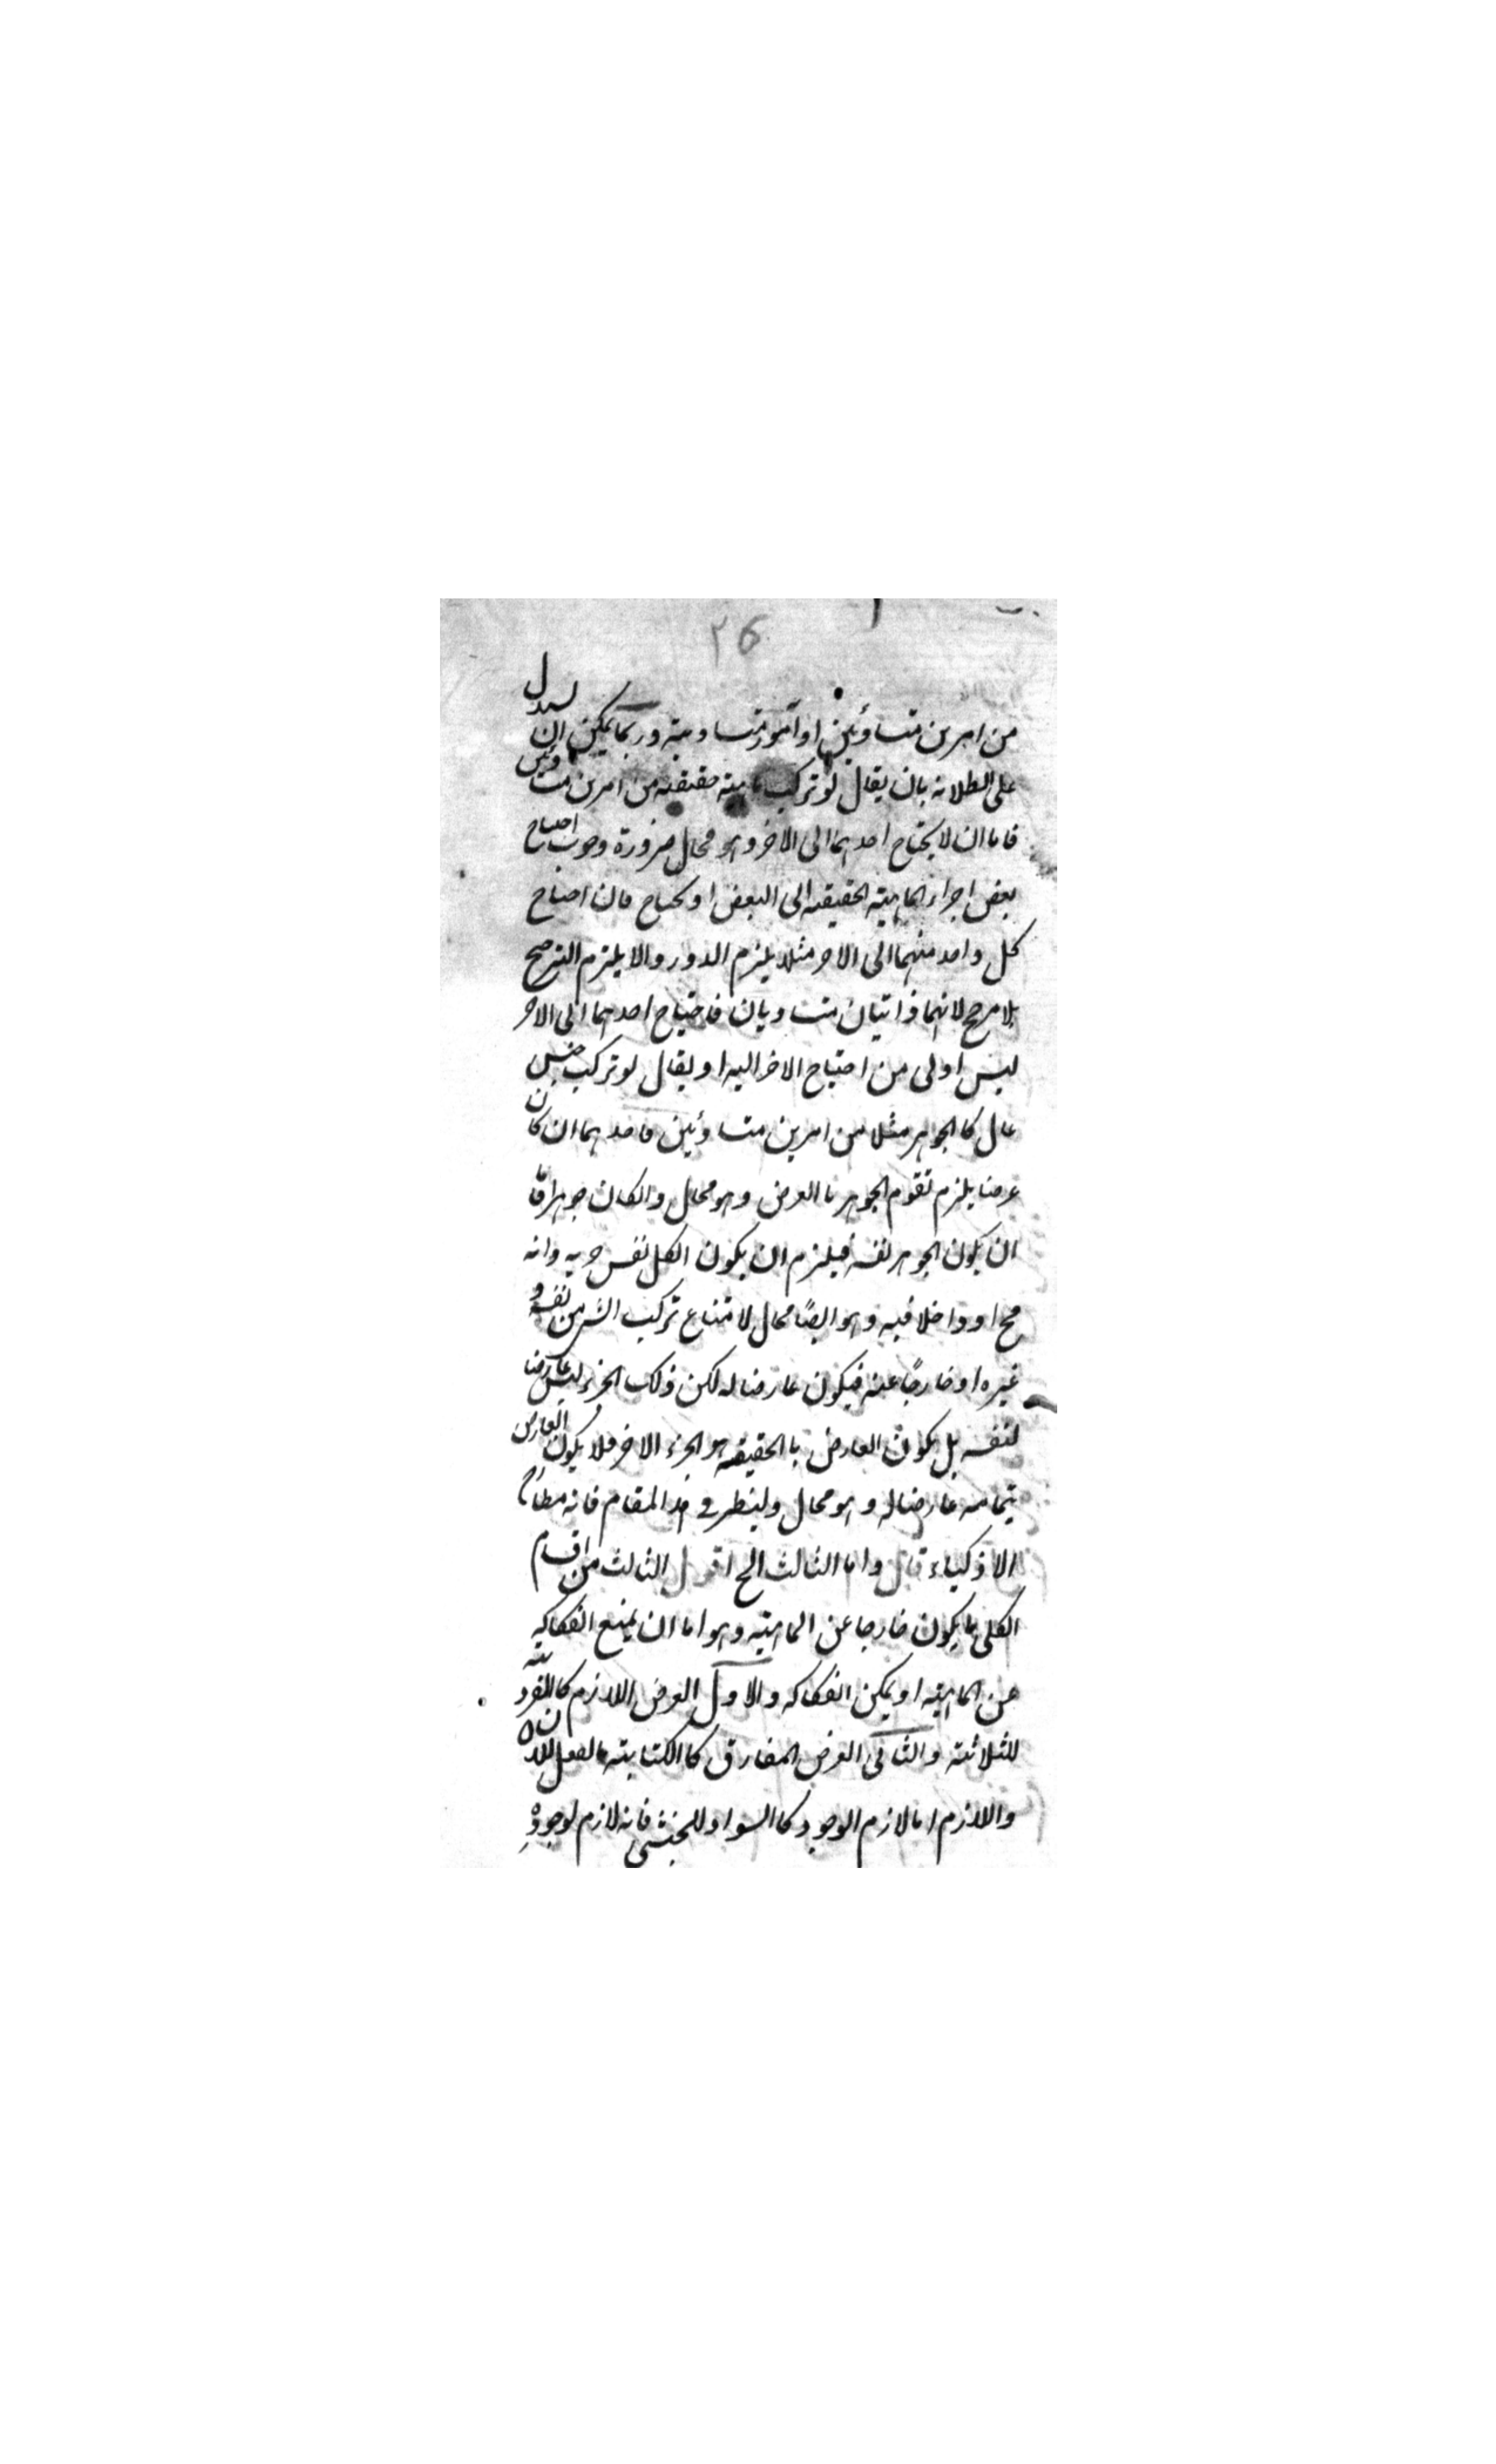 ٢٦
من امرين متساوئين او امور متساوية وربما يمكن ان يستدل
على بطلانه بان يقال لو تركب ماهية حقيقة من امرين متساوئين
فاما ان لا يحتاج احدهما الى الاخر وهو محال ضرورة وجوب احتياج
بعض اجزاء الماهية الحقيقة الى البعض او يحتاج فان احتاج
كل واحد منهما الى الاخر مثلا يلزم الدور والا يلزم الترجيح
بلا مرجح لانهما ذاتيان متساويان فاحتياج احدهما الى الاخر
ليس اولى من احتياج الاخر اليه او يقال لو تركب جنس
عال كالجوهر مثلا من امرين متساوئين فاحدهما ان كان
عرضا يلزم تقوم الجوهر بالعرض وهو محال وان كان جوهرا فاما
ان يكون الجوهر نفسه فيلزم ان يكون الكل نفس جزيه وانه
مح او داخلا فيه وهو ايضًا محال لامتناع تركب الشئ من نفسه و
غيره او خارجًا عنه فيكون عارضا له لكن ذلك الجزء ليس عارضا
لنفسه بل يكون العارض بالحقيقة هو الجزء الاخر فلا يكون العارض
بتمامه عارضا له وهو محال ولينظر في هذا المقام فانه مطارح
الاذكياء قال واما الثالث الخ اقول الثالث من اقسام
الكلى ما يكون خارجا عن الماهية وهو اما ان يمتنع انفكاكه
عن الماهية او يمكن انفكاكه والاول العرض اللازم كالفردية
للثلاثة والثانى العرض المفارق كالكتابة بالفعل للانسان
واللازم اما لازم الوجود كالسواد للحبشى فانه لازم لوجوده